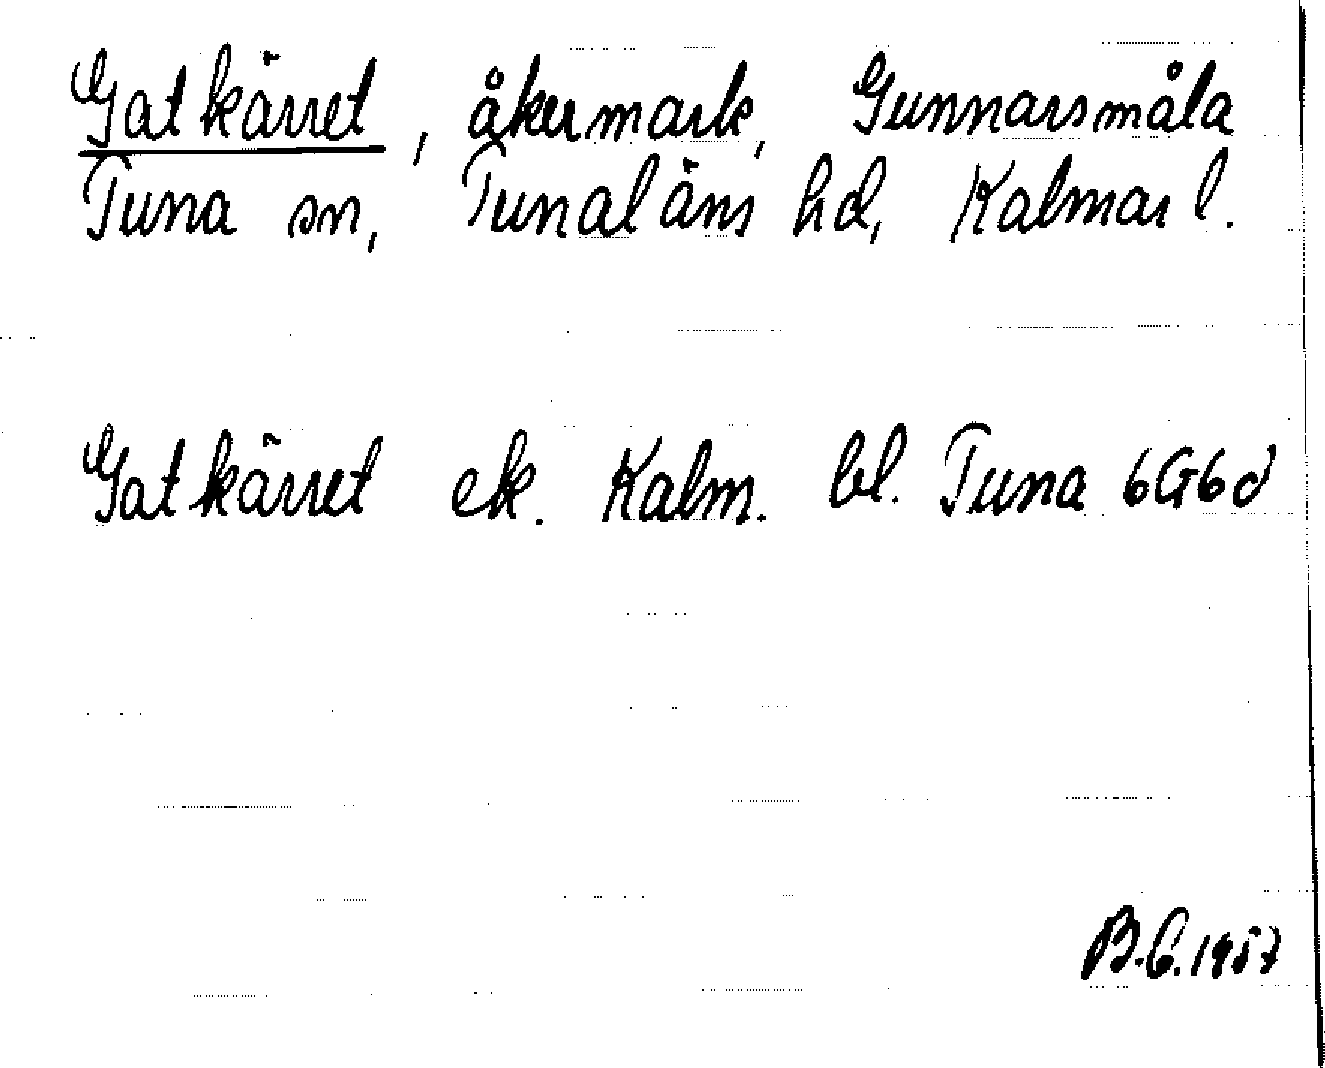 Gatkärret, åkermark, Gunnarsmåla
Tuna sn, Tunaläns hd, Kalmar l.
Gatkärret ek. Kalm. bl. Tuna 6G6d
B.C. 1957